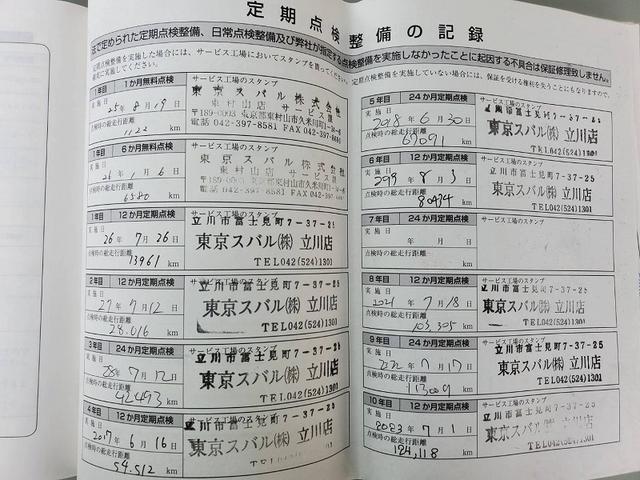 定期点検整備の記録
法で定められた定期点検整備、日常点検整備及び弊社が指定する点検整備を実施しなかったことに起因する不具合は保証修理致しません。
定期点検整備を実施した場合には、サービス工場においてスタンプを
確実に実施してください。
定期点検整備を実施していない場合には、保証を受ける権利を失うことにもなりますので、
1年目 1か月無料点検
サービス工場のスタンプ
実施日
25年8月19日
点検時の総走行距離
1122 km
東京スバル株式会社
東村山店 サービス課
〒189-0003 東京都東村山市久米川町
電話 042-397-8581 FAX 042-397-
1年目 6か月無料点検
サービス工場のスタンプ
実施日
26年1月6日
点検時の総走行距離
6580 km
東京スバル株式会社
東村山店 サービス課
〒189-0003 東京都東村山市久米川町
電話 042-397-8581 FAX 042-397-
1年目 12か月定期点検
サービス工場のスタンプ
実施日
26年7月26日
点検時の総走行距離
13961 km
立川市富士見町7-37-25
東京スバル㈱ 立川店
TEL042(524)1301
2年目 12か月定期点検
サービス工場のスタンプ
実施日
27年7月12日
点検時の総走行距離
28,016 km
立川市富士見町7-37-25
東京スバル㈱ 立川店
TEL042(524)1301
3年目 24か月定期点検
サービス工場のスタンプ
実施日
28年7月12日
点検時の総走行距離
42493 km
立川市富士見町7-37-25
東京スバル㈱ 立川店
TEL042(524)1301
4年目 12か月定期点検
サービス工場のスタンプ
実施日
2017年6月16日
点検時の総走行距離
54,512 km
立川市富士見町7-37-25
東京スバル㈱ 立川店
5年目 24か月定期点検
サービス工場のスタンプ
実施日
2018年6月30日
点検時の総走行距離
67091 km
立川市富士見町7-37-25
東京スバル㈱ 立川店
TEL042(524)1301
6年目 12か月定期点検
サービス工場のスタンプ
実施日
年8月3日
点検時の総走行距離
80934 km
立川市富士見町7-37-25
東京スバル㈱ 立川店
TEL042(524)1301
7年目 24か月定期点検
サービス工場のスタンプ
実施日
年 月 日
点検時の総走行距離
km
8年目 12か月定期点検
サービス工場のスタンプ
実施日
2021年7月18日
点検時の総走行距離
103,305 km
立川市富士見町7-37-25
東京スバル㈱ 立川店
TEL042(524)1301
9年目 24か月定期点検
サービス工場のスタンプ
実施日
2022年7月17日
点検時の総走行距離
km
立川市富士見町7-37-25
東京スバル㈱ 立川店
TEL042(524)1301
10年目 12か月定期点検
サービス工場のスタンプ
実施日
2023年7月1日
点検時の総走行距離
124,118 km
立川市富士見町7-37-25
東京スバル㈱ 立川店